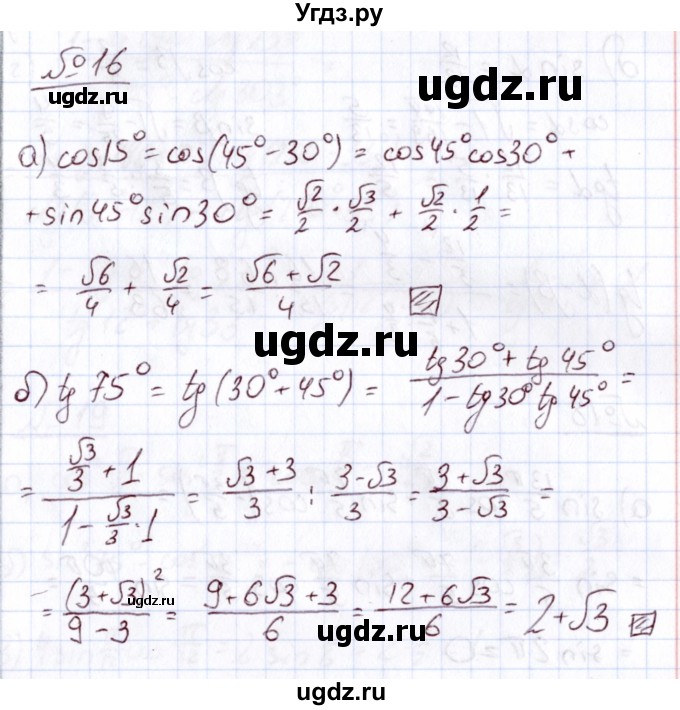 Угдз.ру
№16
ugdz.ru
ugdz.ru
а) cos15° = cos(45° - 30°) = cos45°cos30° +
+ sin45°sin30° = √2/2 · √3/2 + √2/2 · 1/2 =
= √6/4 + √2/4 = (√6 + √2)/4
ugdz.ru
б) tg 75° = tg(30° + 45°) = (tg30° + tg45°)/(1 - tg30°tg45°) =
= (√3/3 + 1)/(1 - √3/3 · 1) = (√3 + 3)/3 : (3 - √3)/3 = (3 + √3)/(3 - √3) =
= (3 + √3)²/(9 - 3) = (9 + 6√3 + 3)/6 = (12 + 6√3)/6 = 2 + √3
ugdz.ru
ugdz.ru
ugdz.ru